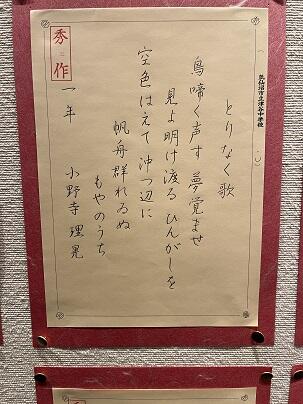 気仙沼市立津谷中学校
とりなく歌
鳥啼く声す 夢覚ませ
見よ明け渡る ひんがしを
空色はえて 沖つ辺に
帆舟群れゐぬ
もやのうち
一年 小野寺 理晃
秀作